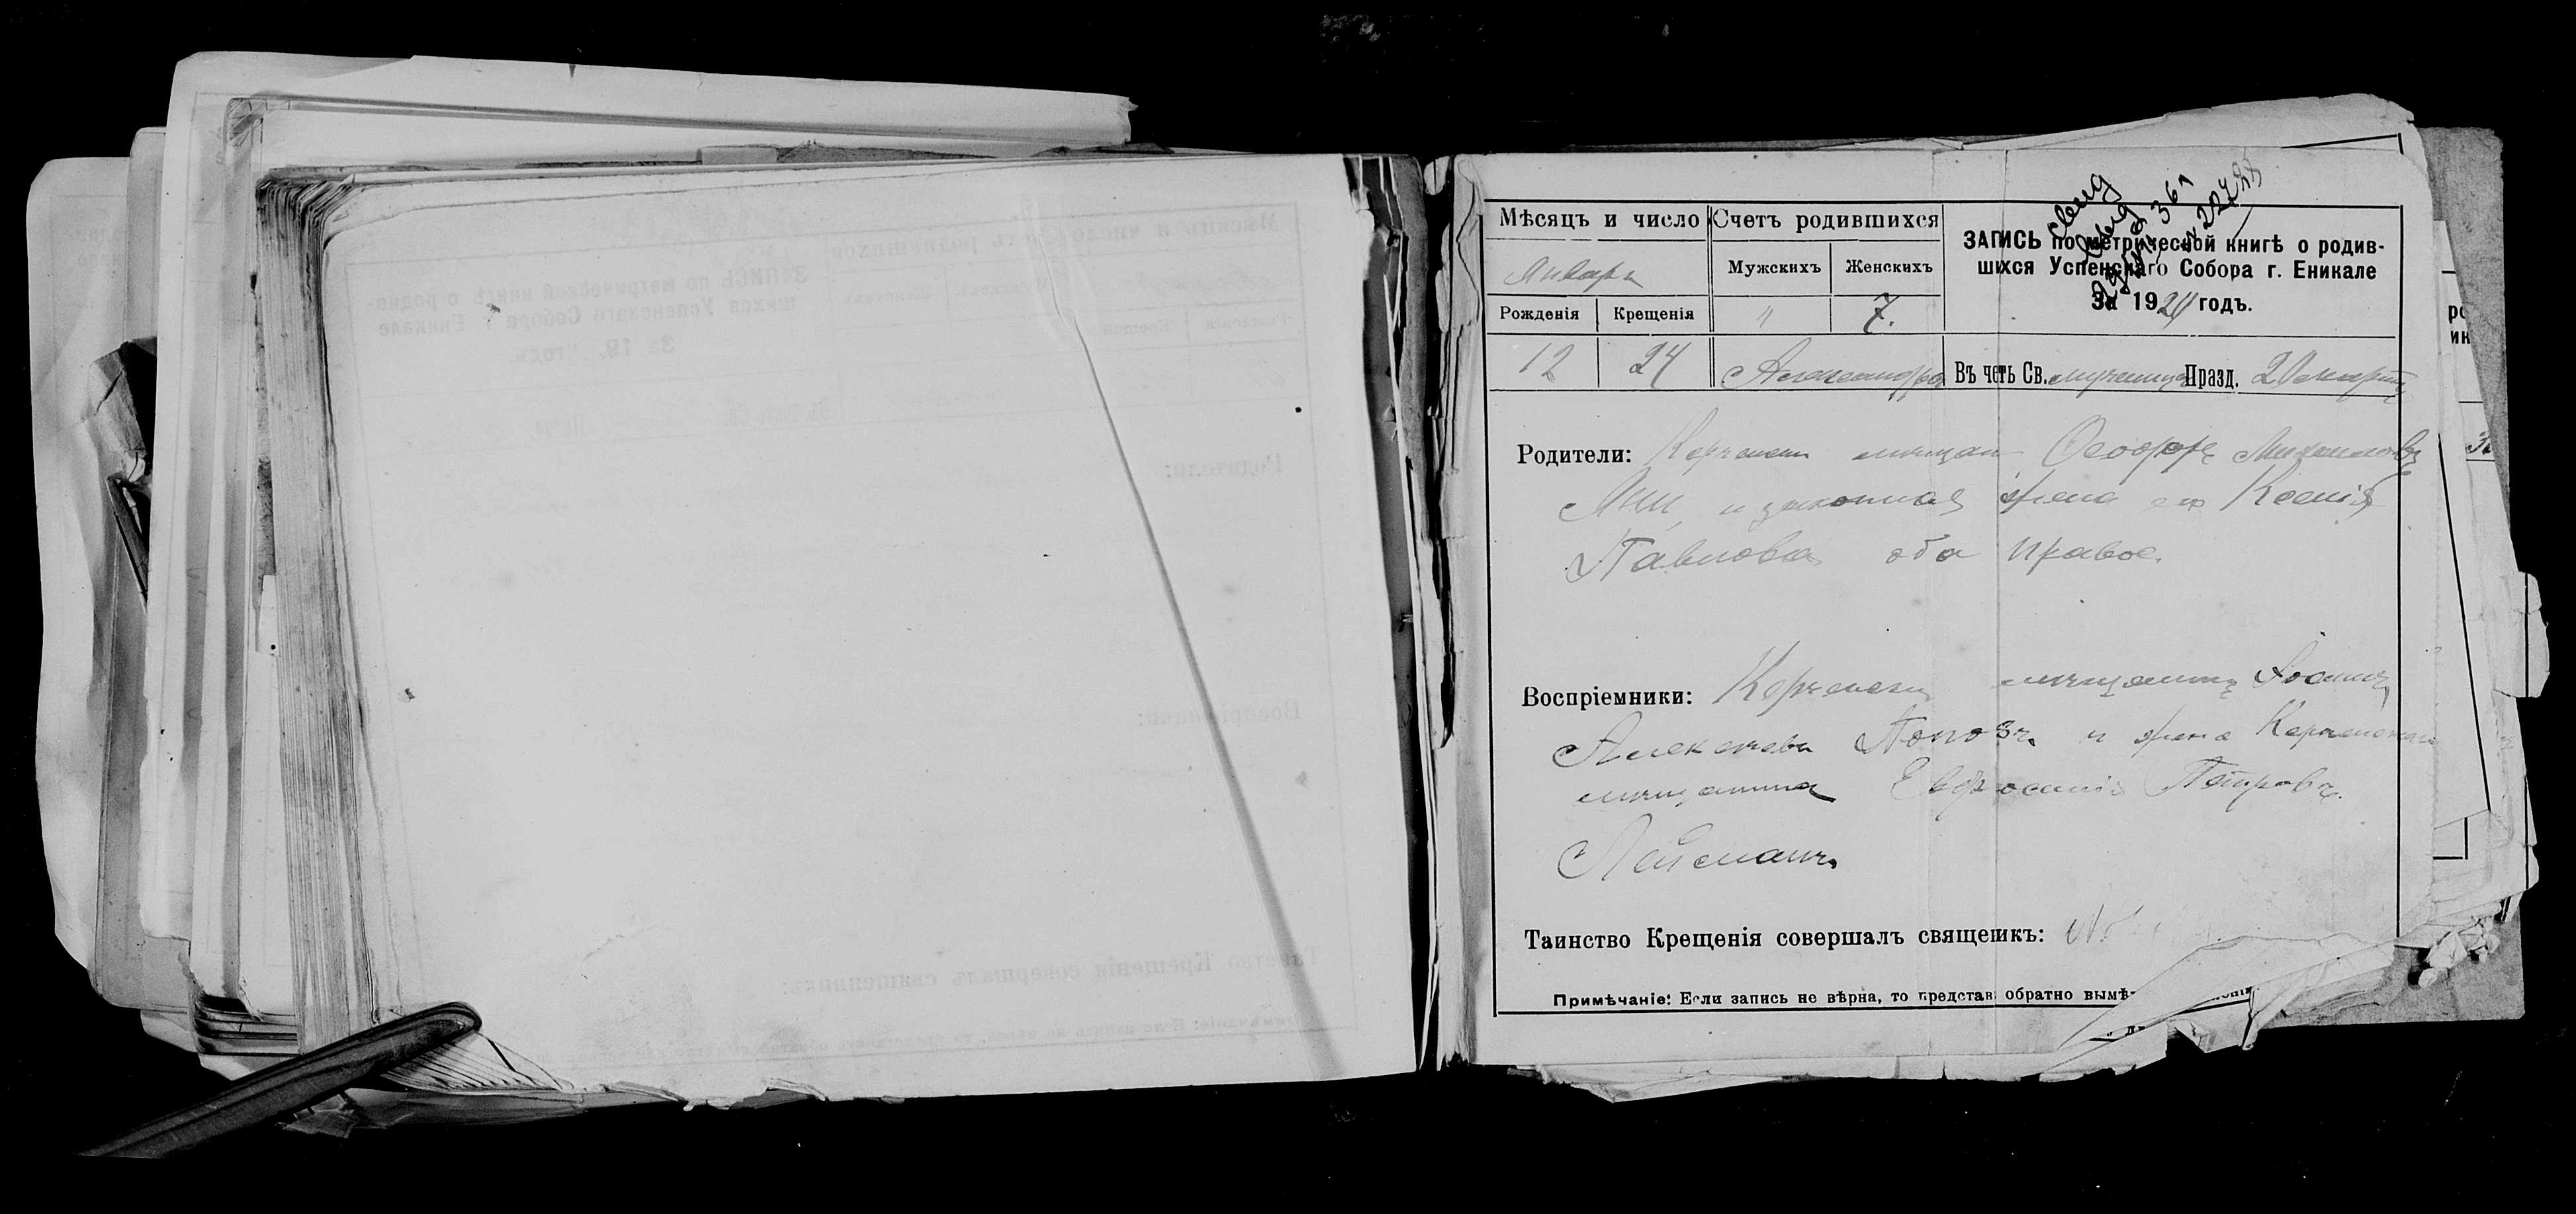 Мѣсяцъ и число
Января
Рожденія Крещенія
12 24
Счетъ родившихся
Мужскихъ Женскихъ
" 7.
Александра
ЗАПИСЬ по метрической книгѣ о родив-
шихся Успенскаго Собора г. Еникале
За 1924 годъ.
Въ честь Св. мученицы Празд. 20 марта
Родители: Керченскій мѣщан. Ѳеодоръ Михаиловъ
и законная жена его Ксенія
Павлова оба правос.
Воспріемники: Керченскій мѣщанинъ Іоаннъ
Алексѣевъ Поповъ и жена Керченскаго
мѣщанина Евфросинія Петрова
Таинство Крещенія совершалъ священикъ:
Примѣчаніе: Если запись не вѣрна, то представ обратно вымѣ